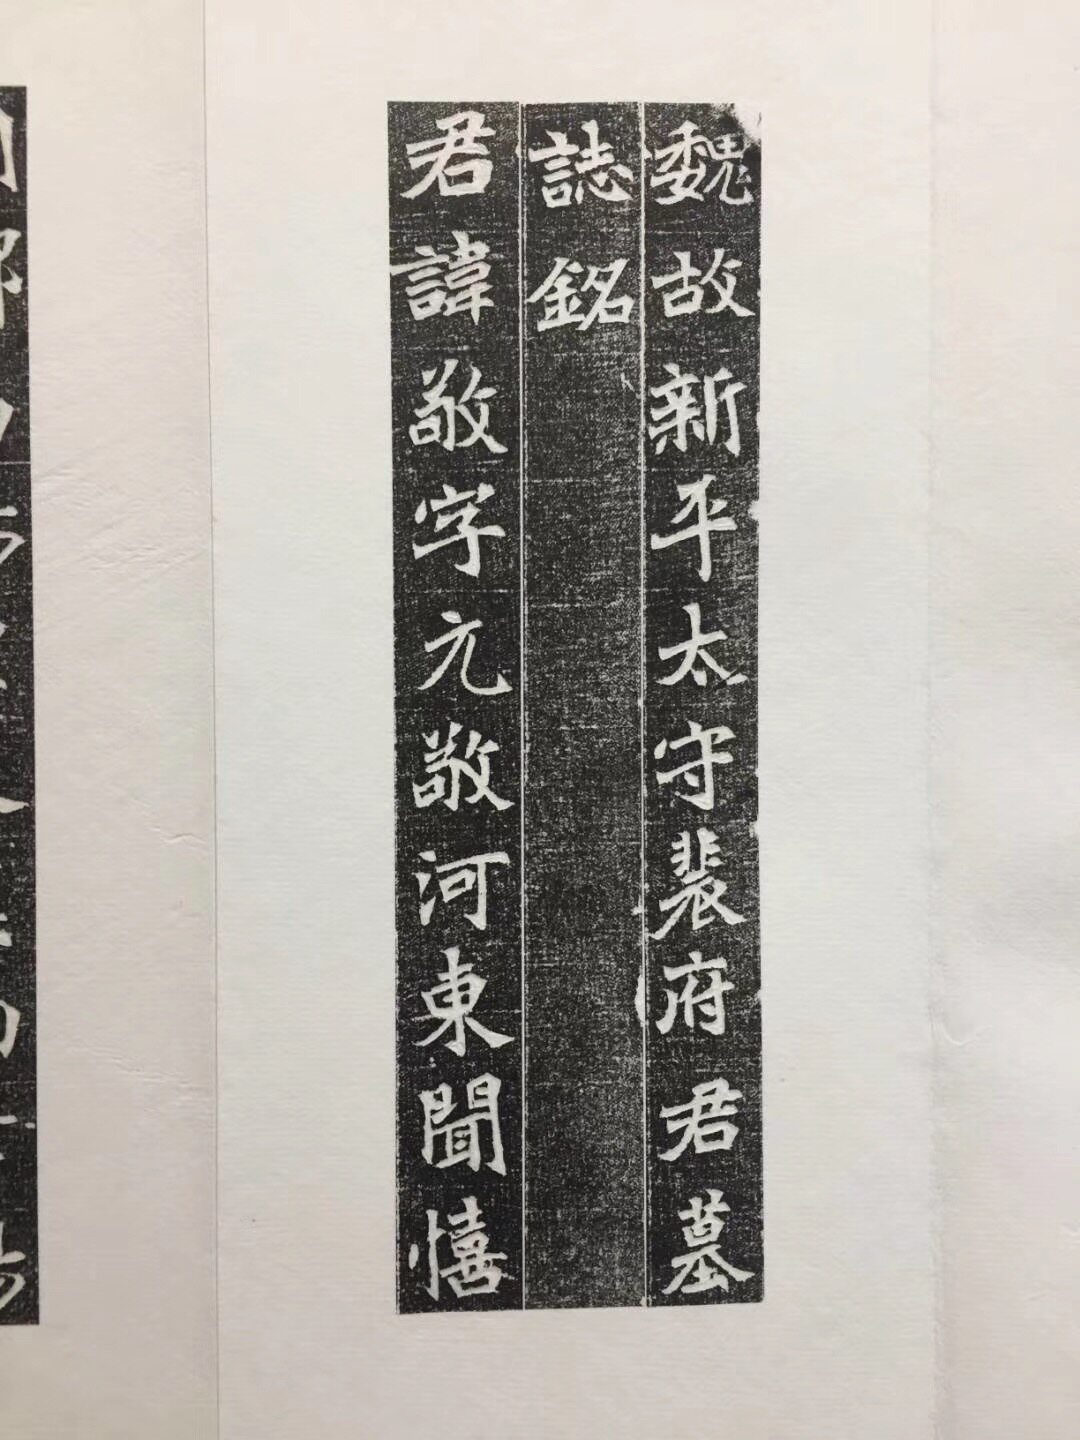 魏故新平太守裴府君墓
誌銘
君諱敬字元敬河東聞憘